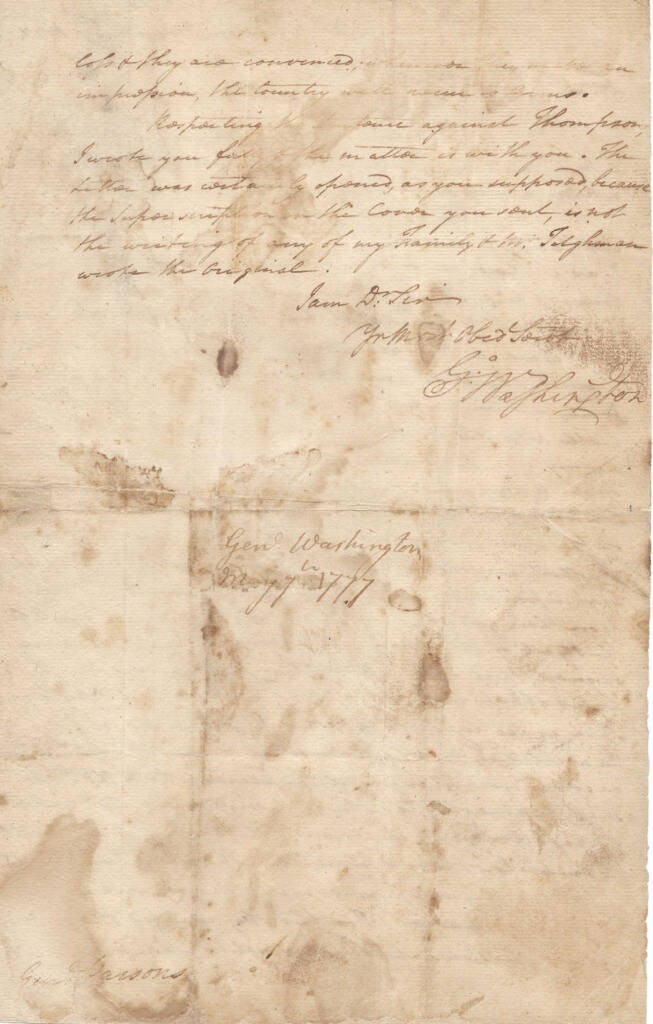 loss & they are convinced, whenever they make an
impression, the Country will
Respecting the Sentence against Thompson,
I wrote you fully & the matter is with you. The
Letter was certainly opened, as you supposed, because
the Superscription on the Cover you sent, is not
the writing of any of my Family & Mr. Tilghman
wrote the Original.
I am Dr. Sir
Yr Most Obed Servt
Go: Washington
Genl Washington
May 7th 1777
Genl Parsons